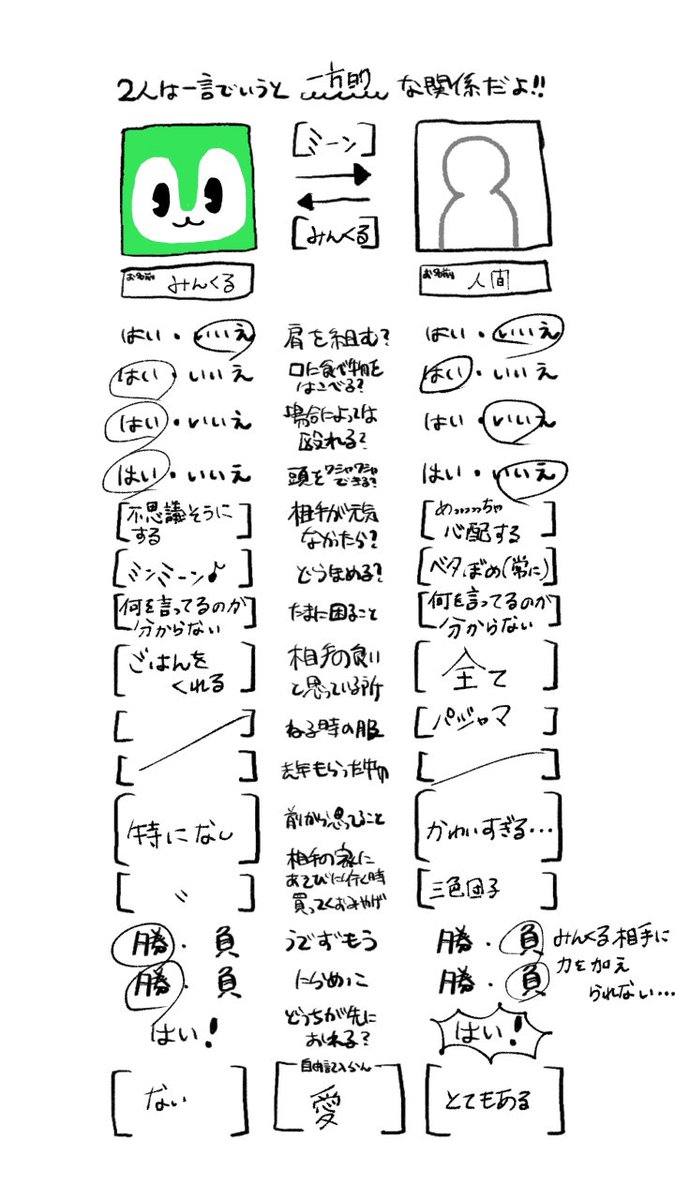 2人は一言でいうと 一方的 な関係だよ!!
[ミーン]
[みんくる]
お名前 みんくる
お名前 人間
はい・いいえ 肩を組む? はい・いいえ
はい・いいえ 口に食べ物を はい・いいえ
はこべる?
はい・いいえ 場合によっては はい・いいえ
殴れる?
はい・いいえ 頭をワシャワシャ はい・いいえ
できる?
[不思議そうに 相手が元気 [めっっっっちゃ
する] なかったら? 心配する]
[ミンミーン♪] どうほめる? [ベタぼめ(常に)]
[何を言ってるのか たまに困ること [何を言ってるのか
分からない] 分からない]
[ごはんを 相手の良い [全て]
くれる] と思っている所
[ ] ねる時の服 [パジャマ]
[ ] 去年もらった物 [ ]
[特になし] 前から思ってること [かわいすぎる…]
相手の家に
[〃] あそびに行く時 [三色団子]
買ってくおみやげ
勝・負 うでずもう 勝・負 みんくる相手に
力を加え
勝・負 にらめっこ 勝・負 られない…
はい! どっちが先に はい!
おれる?
自由記入らん
[ない] [愛] [とてもある]